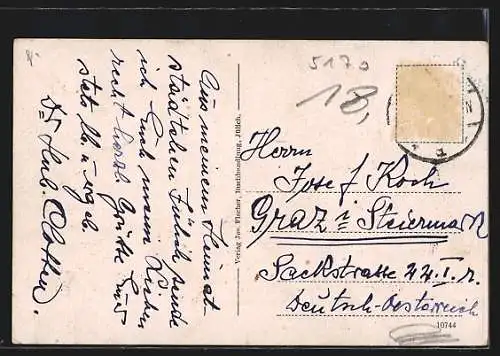 Aus meinem Heimat-
städtchen Jülich sende
ich Euch meine Lieben
recht herzl. Grüße Euer
stets lb. u.
Dr Hub.
Verlag Jos. Fischer, Buchhandlung, Jülich.
5170
18,
Herrn
Josef Koch
Graz i Steiermark
Sackstrasse 22 I. r.
Deutsch-Oesterreich
10744